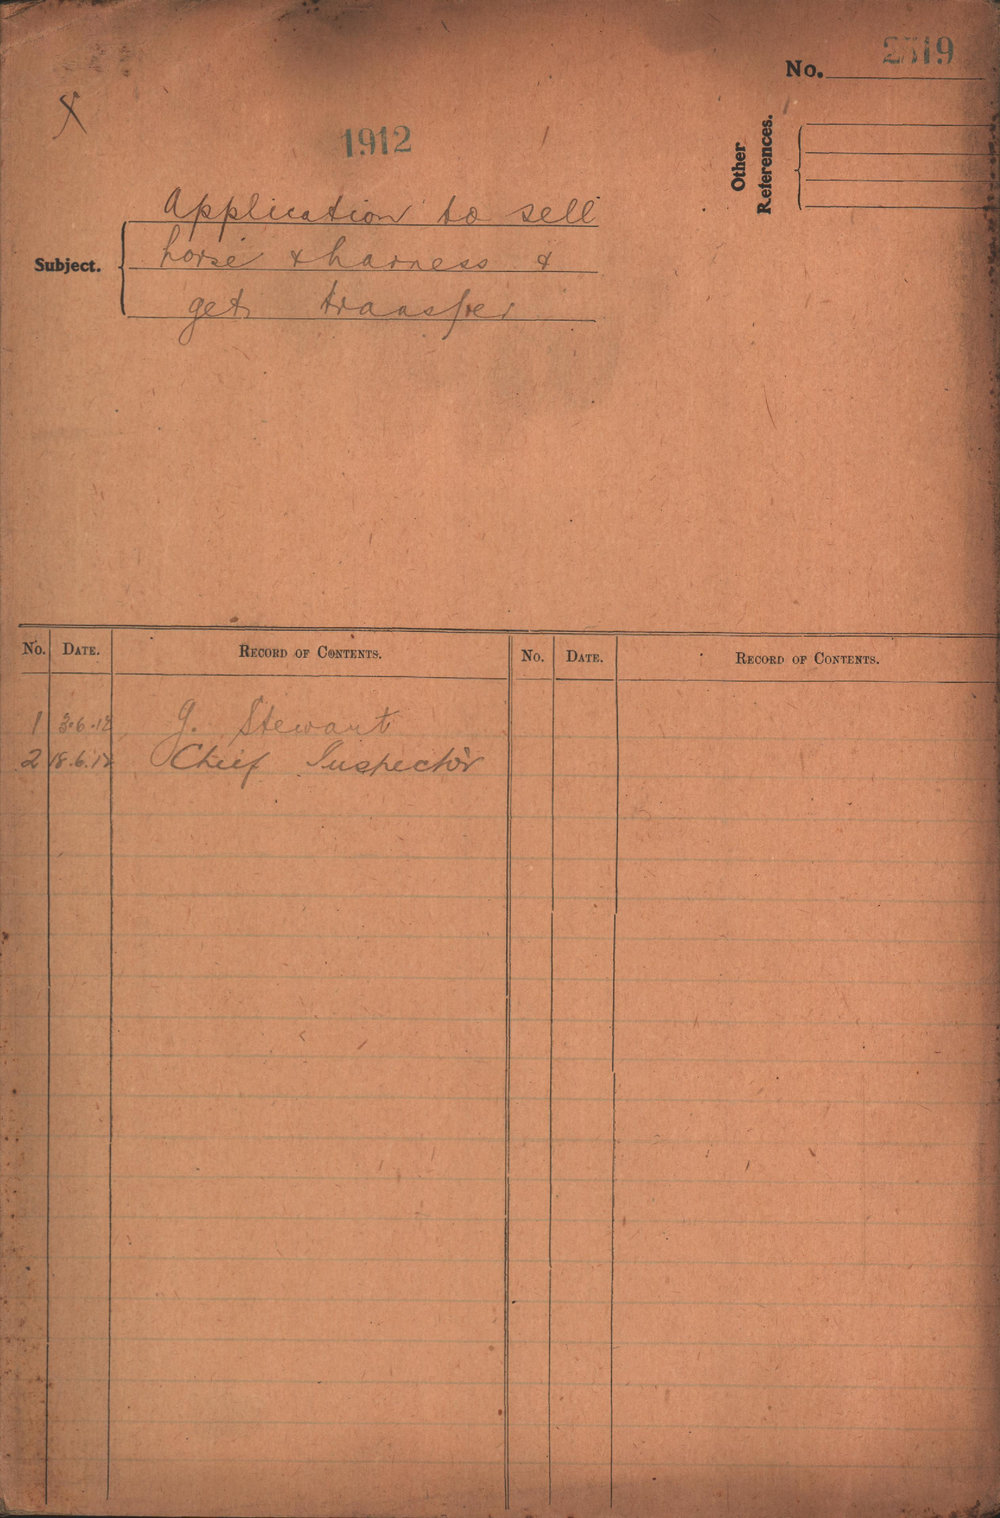 No. 2519
X
1912
Other
References.
Subject.
Application to sell
horse & harness &
get transfer
No. DATE. RECORD OF CONTENTS. No. DATE. RECORD OF CONTENTS.
1 3.6.12 G. Stewart
2 18.6.12 Chief Inspector